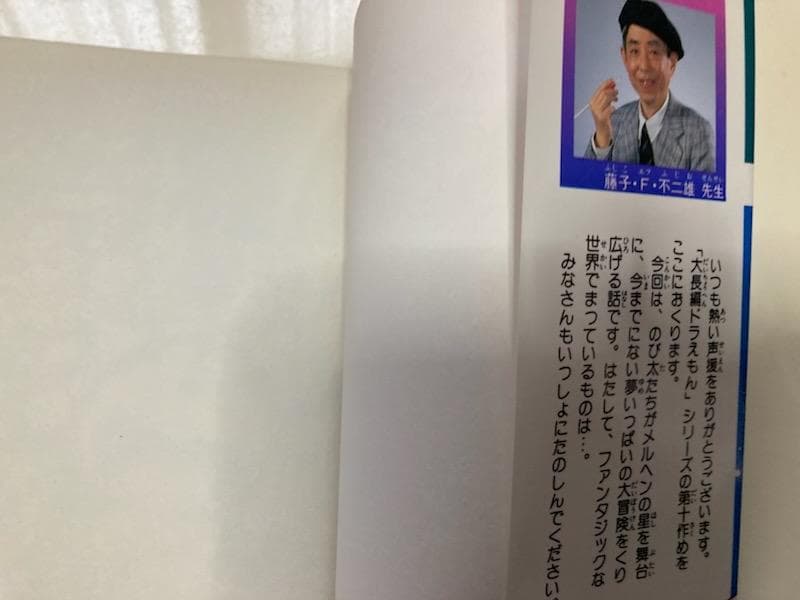 藤子・F・不二雄 先生
いつも熱い声援をありがとうございます。
「大長編ドラえもん」シリーズの第十作めを
ここにおくります。
今回は、のび太たちがメルヘンの星を舞台
に、今までにない夢いっぱいの大冒険をくり
広げる話です。はたして、ファンタジックな
世界でまっているものは…。
みなさんもいっしょにたのしんでください。